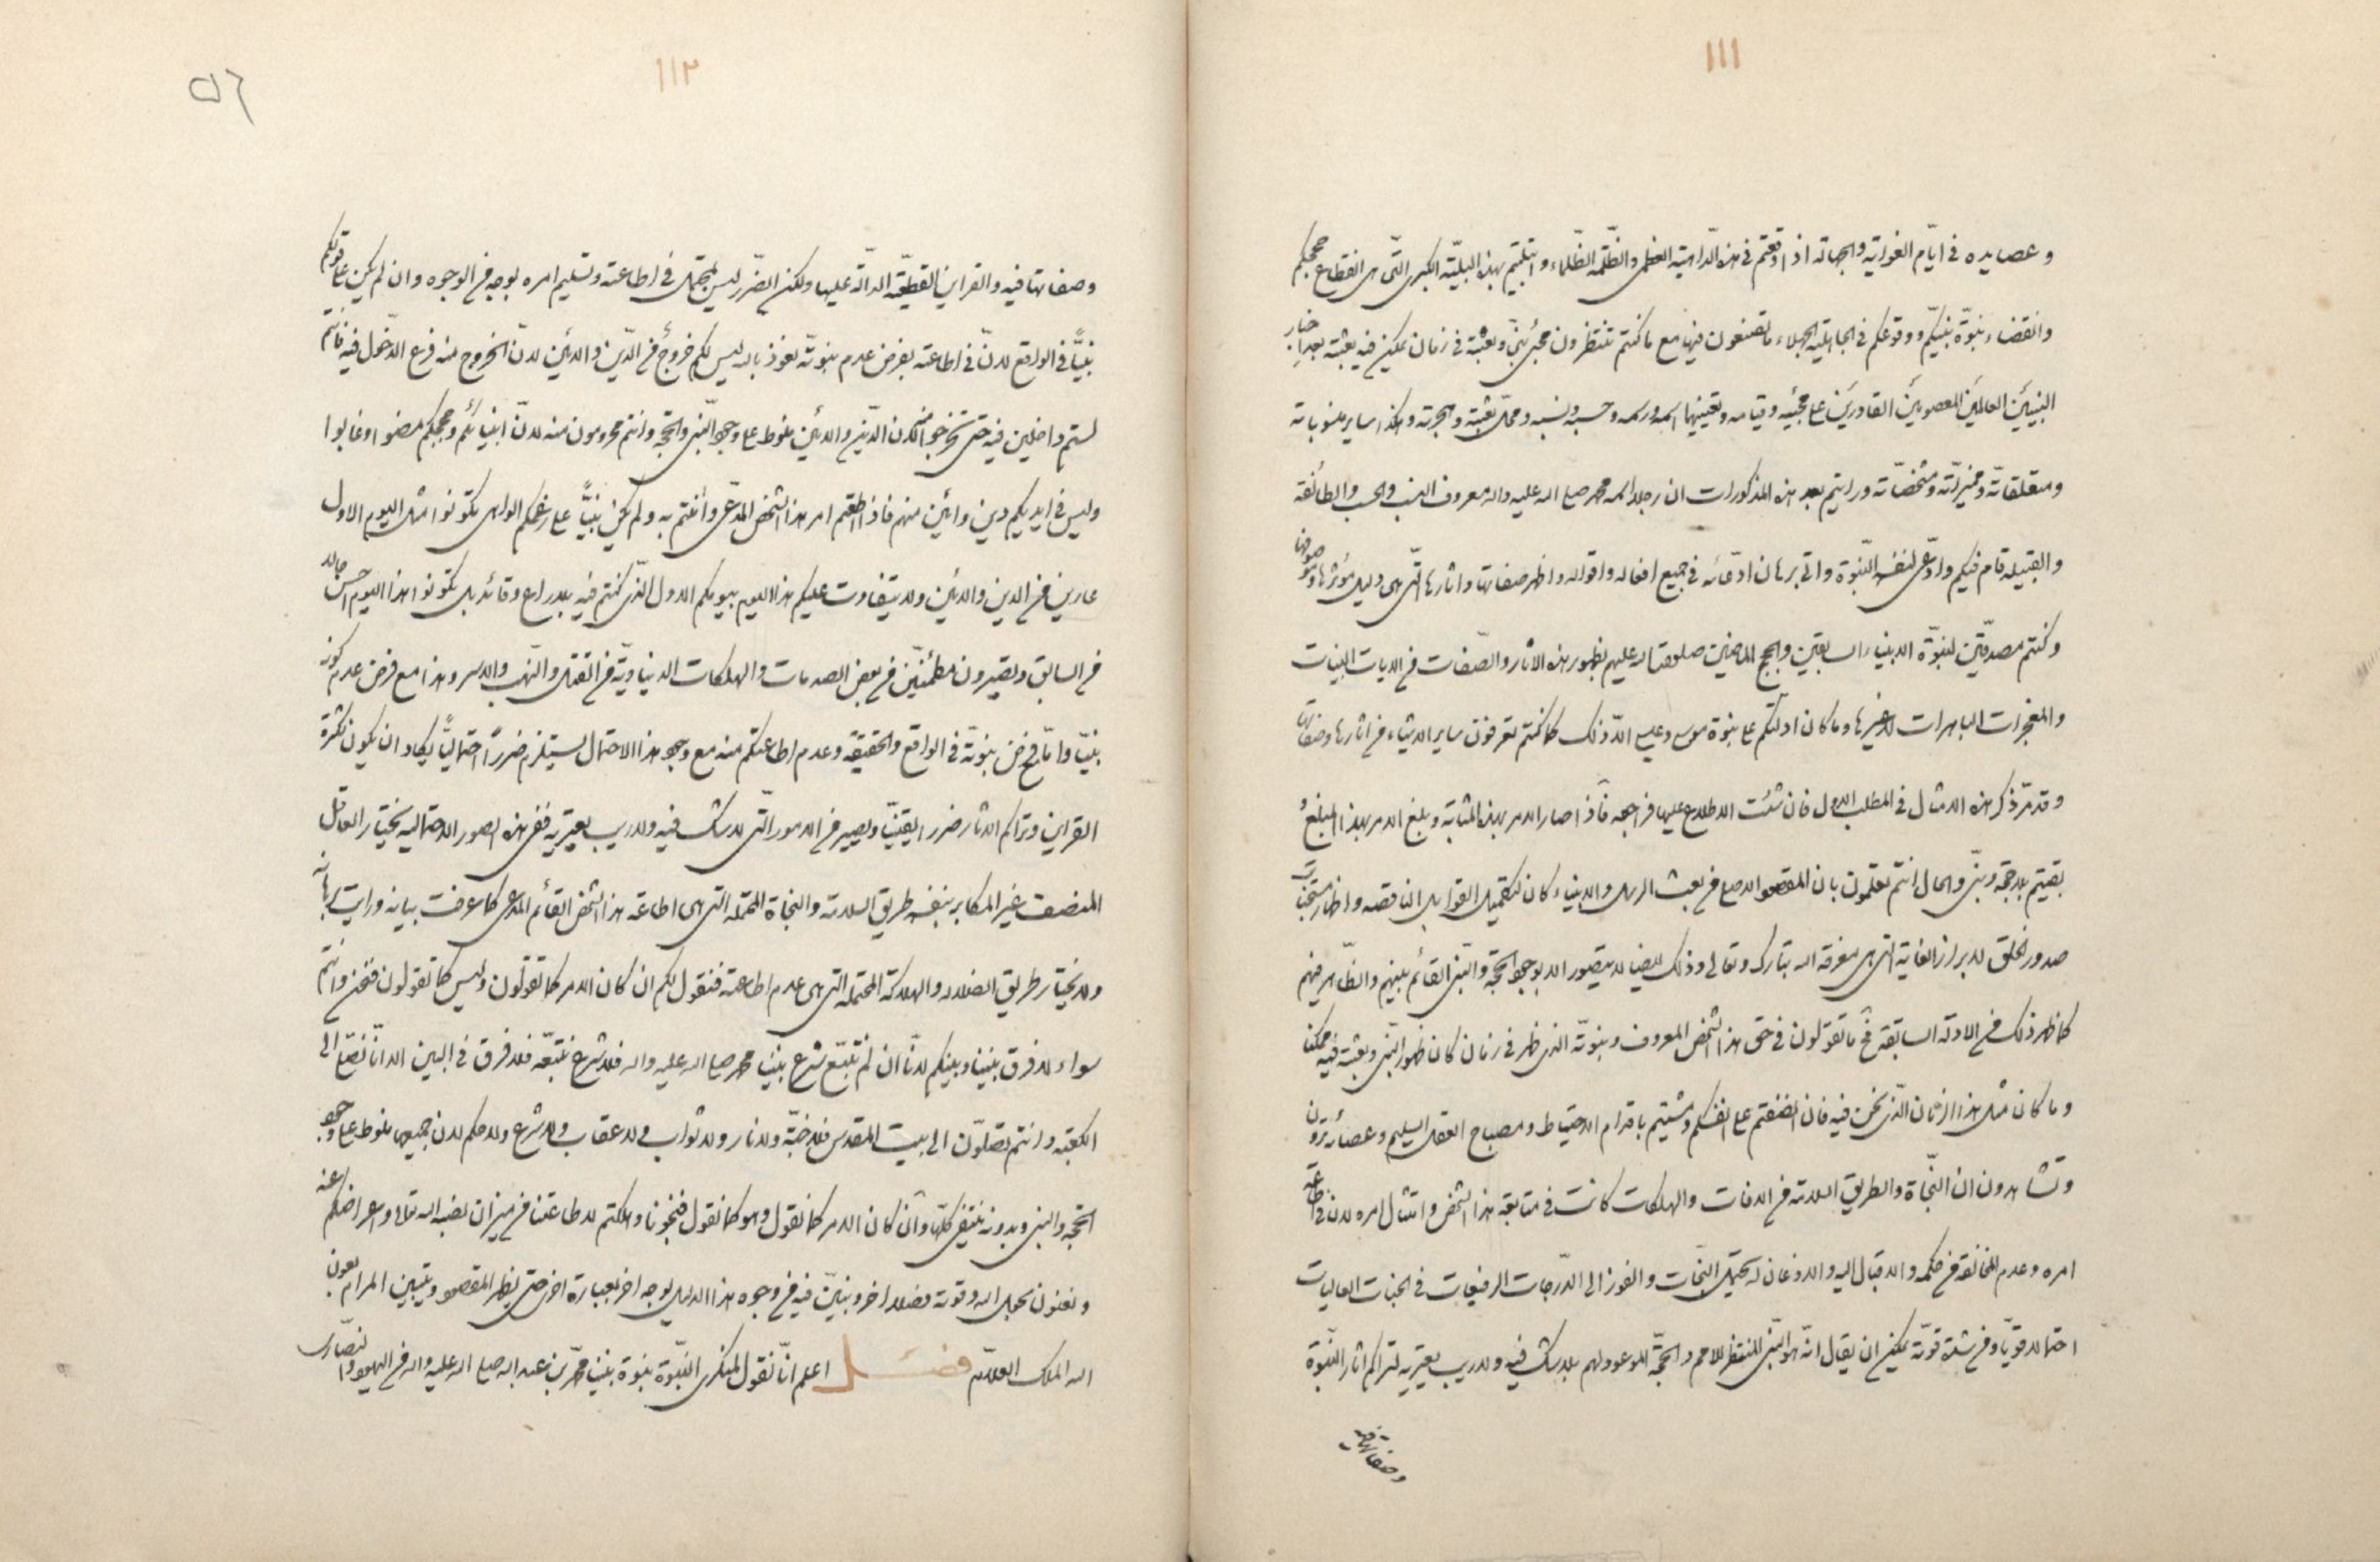 ١١١
و عصایده فی ایّام الغوایة والجهالة اذا وقعتم فی هذه الدّاهیة العظمی والظّلمة الظّلماء و ابتلیتم بهذه البلیّة الکبری الّتی هی انقطاع حججکم
وانقضاء نبوّة نبیّکم ووقوعکم فی الجاهلیّة الجهلاء ما تصنعون فیها مع ما کنتم تنتظرون مجئ نبیّ وبعثته فی زمان یمکن فیه بعثته بعد اخبار
النبیّین العالمین المعصومین القادرین علی مجیئه وقیامه وتعیینهما اسمه ورسمه وحسبه ونسبه ومحلّ بعثته وهجرته وهکذا سایر منسوباته
ومتعلقاته وممیزاته ومشخصاته ورایتم بعد هذه المذکورات ان رجلا اسمه محمد صلی الله علیه واله معروف النسب والحسب والطائفة
والقبیلة قام فیکم وادّعی لنفسه النّبوّة واتی برهان ادّعائه فی جمیع افعاله واقواله واظهر صفاتها واثارها الّتی هی دلیل مؤثرها وموصوفها
وکنتم مصدّقین لنبوّة الانبیاء السابقین والحجج الماضین صلوات الله علیهم بظهور هذه الاثار والصّفات من الایات البینات
والمعجزات الباهرات لا غیرها وما کان ادلتکم علی نبوة موسی وعیسی الا ذلک کما کنتم تعرفون سایر الاشیاء من اثارها وصفاتها
وقد مرّ ذکر هذه الامثال فی المطلب الاول فان شئت الاطلاع علیها فراجعه فاذا صار الامر بهذه المثابة وبلغ الامر بهذا المبلغ
بقیتم بلا حجة ونبی والحال انتم تعلمون بان المقصود الاصلی من بعث الرسل والانبیاء کان لتکمیل القوابل الناقصة واظهار مستجنات
صدور الخلق لابراز الغایة التی هی معرفة الله تبارک وتعالی وذلک ایضا لا یتصور الا بوجود الحجة والنبی القائم بینهم والظاهر فیهم
کما ظهر ذلک من الادلة السابقة فح ما تقولون فی حق هذا الشخص المعروف ونبوّته الذی ظهر فی زمان کان ظهور النبی وبعثته فیه ممکنا
وما کان مثل هذا الزمان الّذی نحن فیه فان انصفتم علی انفسکم ومشیتم باقدام الاحتیاط ومصباح العقل السلیم وعصا ترون
وتشاهدون ان النّجاة والطریق السلامة من الافات والهلکات کانت فی متابعة هذا الشخص وامتثال امره لان فی اطاعة
امره وعدم المخالفة من حکمه والاقبال الیه والاذعان له یحتمل النجات والفوز الی الدّرجات الرفیعات فی الجنات العالیات
احتمالا قویّا ومن شدة قوّته یمکن ان یقال انّه هو النّبی المنتظر للامم والحجّة الموعود لهم بلا شک فیه ولا ریب یعتریه لتراکم اثار النّبوّة
وصفاتها فیه
١١٢
٥٦
وصفاتها فیه والقراین القطعیّة الدالّة علیها ولکن الضّرر لیس بمحتمل فی اطاعته وتسلیم امره بوجه من الوجوه وان لم یکن علی قولکم
نبیّا فی الواقع لانّ فی اطاعته بفرض عدم نبوته نعوذ بالله لیس لکم خروج من الدّین والدائین لانّ الخروج منه فرع الدّخول فیه فانتم
لستم داخلین فیه حتی تخرجوا لان الدّین والدائین منوط علی وجود النّبی والحجة وانتم محرومون منه لانّ انبیائکم وحججکم مضوا وغابوا
ولیس فی ایدیکم دین وائین منهم فاذا اطعتم امر هذا الشخص المدّعی وامنتم به ولم یکن نبیّا علی زعمکم الواهی تکونوا مثل الیوم الاول
عارین من الدین والدائین ولا یتفاوت علیکم هذا الیوم بیومکم الاول الذی کنتم فیه بلا راع وقائد بل تکونوا هذا الیوم احسن حالا
من السابق وتصیرون مطمئنین من بعض الصدمات والهلکات الدنیاویّة من القتل والنهب والاسر وهذا مع فرض عدم کونه
نبیّا واما فرض نبوّته فی الواقع والحقیقة وعدم اطاعتکم منه مع وجود هذا الاحتمال یستلزم ضررا احتمالیّا یکاد ان یکون لکثرة
القراین وتراکم الاثار ضررا یقینیّا ویصیر من الامور الّتی لا شک فیه ولا ریب یعتریه ففی هذه الصور الاحتمالیة یختار العاقل
المنصف غیر المکابر بنفسه طریق السلامة والنجاة المحتملة التی هی اطاعة هذا الشخص القائم المدعی کما عرفت بیانه ورایت برهانه
ولا یختار طریق الضلالة والهلاکة المحتملة التی هی عدم اطاعته فنقول لکم ان کان الامر کما تقولون ولیس کما تقولون فنحن وانتم
سواء لا فرق بیننا وبینکم لانّا ان لم نتبع شرع نبینا محمد صلی الله علیه واله فلا شرع نتبعه فلا فرق فی البین الا انّا نصلّی الی
الکعبة وانتم تصلّون الی بیت المقدس فلا جنة ولا نار ولا ثواب ولا عقاب ولا شرع ولا حکم لان جمیعها منوط علی وجود
الحجة والنبی وبدونه ینتفی کلّها وان کان الامر کما نقول وهو کما نقول فنجونا وهلکتم لاطاعتنا من میزان نصبه الله تعالی واعراضکم عنه
ونعنون بحول الله وقوته فصلا اخر ونبیّن فیه من وجوه هذا الدلیل بوجه اخر بعبارة اخری حتی یظهر المقصود ویتبین المرام بعون
الله الملک العلّام فصل اعلم انّا نقول لمنکری النّبوّة نبوة نبینا محمّد بن عبد الله صلی الله علیه واله من الیهود والنّصاری